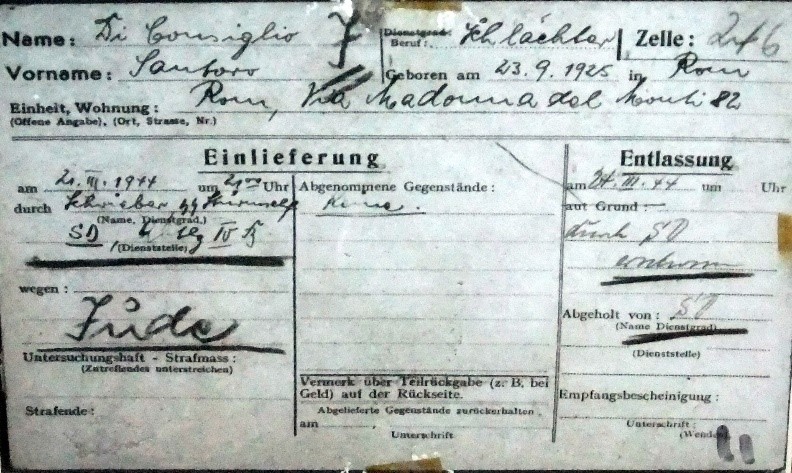 Name: Di Consiglio J Dienstgrad: Beruf: Schlächter Zelle: 246
Vorname: Santoro Geboren am 23.9.1925 in Rom
Einheit, Wohnung: Rom, Via Madonna del Monti 82
(Offene Angabe), (Ort, Strasse, Nr.)
Einlieferung
am 21.III.1944 um Uhr
durch
(Name, Dienstgrad.)
SD IV
(Dienststelle)
wegen:
Jude
Untersuchungshaft - Strafmass:
(Zutreffendes unterstreichen)
Strafende:
Abgenommene Gegenstände:
Keine.
Vermerk über Teilrückgabe (z. B. bei
Geld) auf der Rückseite.
Abgelieferte Gegenstände zurückerhalten
am
Unterschrift
Entlassung
am 24.III.44 um Uhr
auf Grund:
durch SD
Abgeholt von: SD
(Name Dienstgrad)
(Dienststelle)
Empfangsbescheinigung:
Unterschrift: